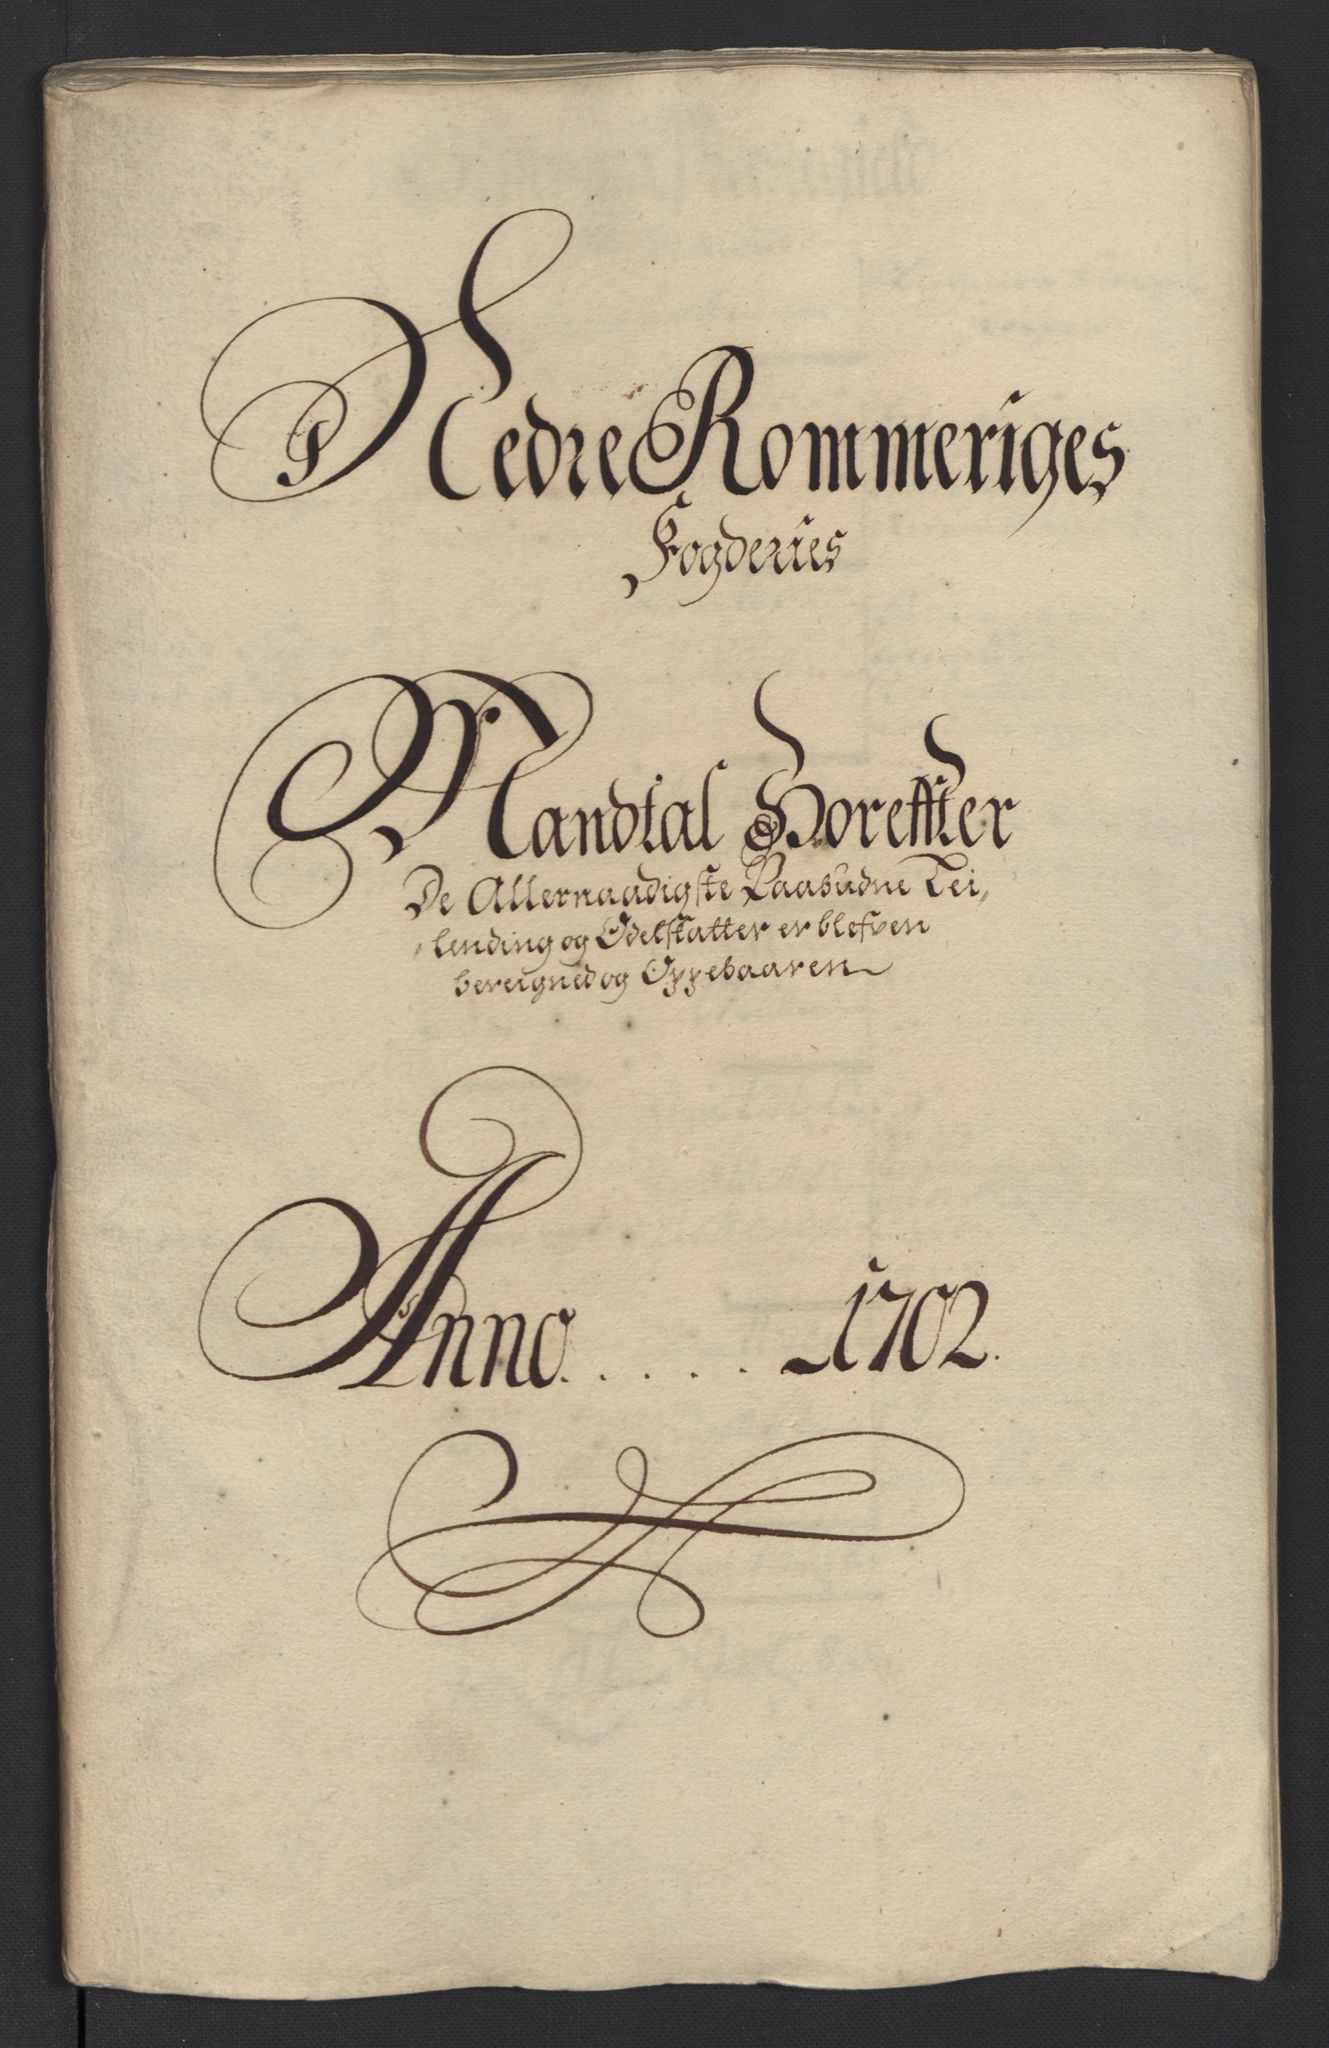 Nedre Rommeriges
Fogderies
Mandtal Horeffter
De Allernaadigste Paabudne Lei,,
,,lending og Odelskatter er blefven
bereigned og Oppebaaren
Anno. . . . . . 1702.